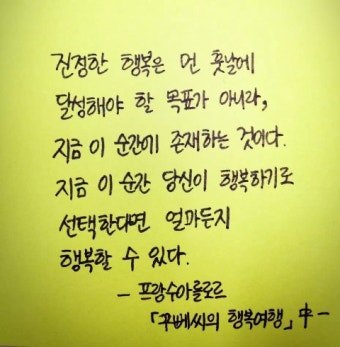 진정한 행복은 먼 훗날에
달성해야 할 목표가 아니라,
지금 이 순간에 존재하는 것이다.
지금 이 순간 당신이 행복하기로
선택한다면 얼마든지
행복할 수 있다.
- 프랑수아를로르
「꾸뻬씨의 행복여행」中 -